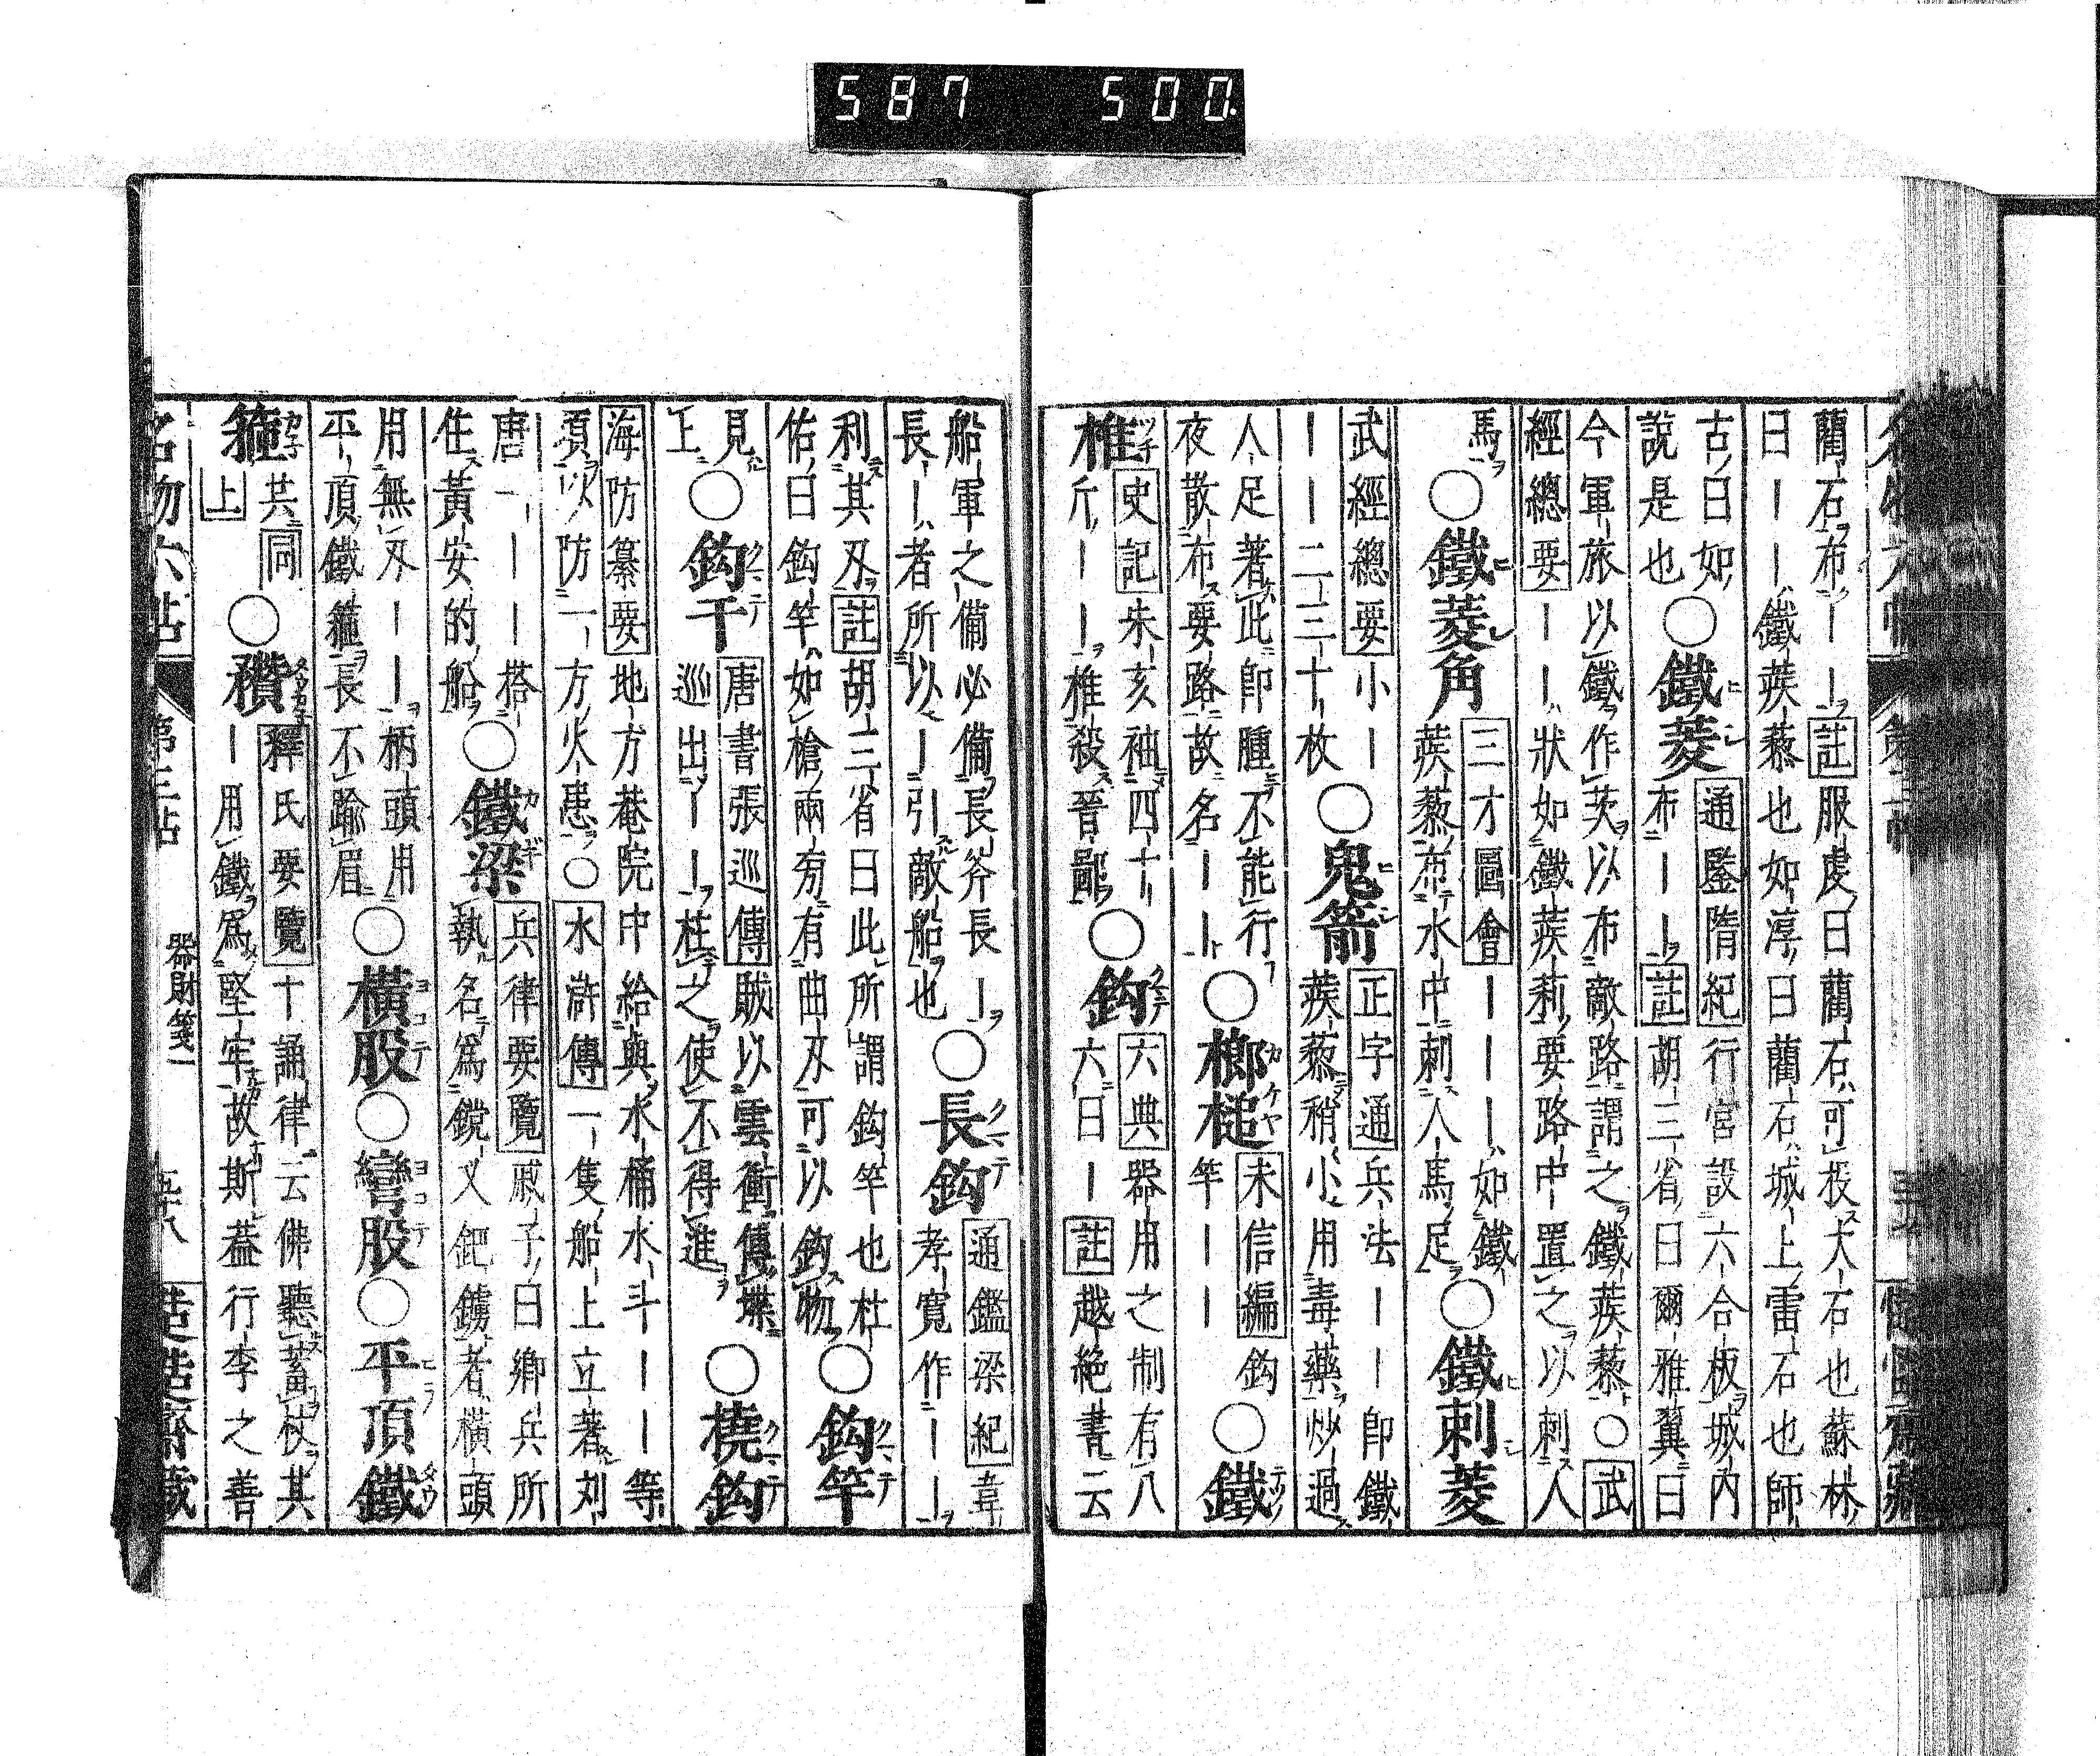 藺石布｜｜註服虔曰藺石可投大石也蘇林
曰｜｜鐵蒺藜也如淳曰藺石城上雷石也師
古曰如
説是也
○鐵菱
通鑒隋紀行宮設六合板城内
布｜｜註胡三省曰爾雅翼曰
今軍旅以鐵作茨以布敵路謂之鐵蒺藜○武
經總要｜｜｜狀如鐵蒺莉要路中置之以刺人
馬○鐵菱角
三才圖會｜｜｜如鐵
蒺藜布水中刺人馬足
○鐵刺菱
武經總要小｜
｜｜二三十枚
○鬼箭
正字通兵法｜｜即鐵
蒺藜稍小用毒藥炒過
人足著此即腫不能行
夜散布要路故名｜｜
○榔槌
未信編鈎
竿｜｜
○鐵
椎
史記朱亥袖四十
斤｜｜椎殺晉鄙
○鈎
六典器用之制有八
六曰｜註越絶書云
船軍之備必備長斧長｜
長｜者所以｜引敵船也
○長鈎
通鑑梁紀韋
孝寬作｜｜
利其刄註胡三省曰此所謂鈎竿也杜
佑曰鈎竿如槍兩旁有曲刄可以鈎物
○鈎竿
見
上
○鈎干
唐書張巡傳賊以雲衝傅堞
巡出｜｜柱之使不得進
○橈鈎
海防纂要地方菴院中給與水桶水斗｜｜等
項以防一方火患○水滸傳一隻船上立著刘
唐一｜｜搭
住黃安的船
○鐵梁
兵律要覽戚子曰卿兵所
執名為鎲又鈀鐪者橫頭
用無刄｜｜柄頭用
平頂鐵箍長不踰眉
○橫股○彎股○平頂鐵
箍
共同
上
○穳
釋氏要覽十誦律云佛聽蓄杖其
｜用鐵為堅牢故斯蓋行李之善
器財箋二
587 500.